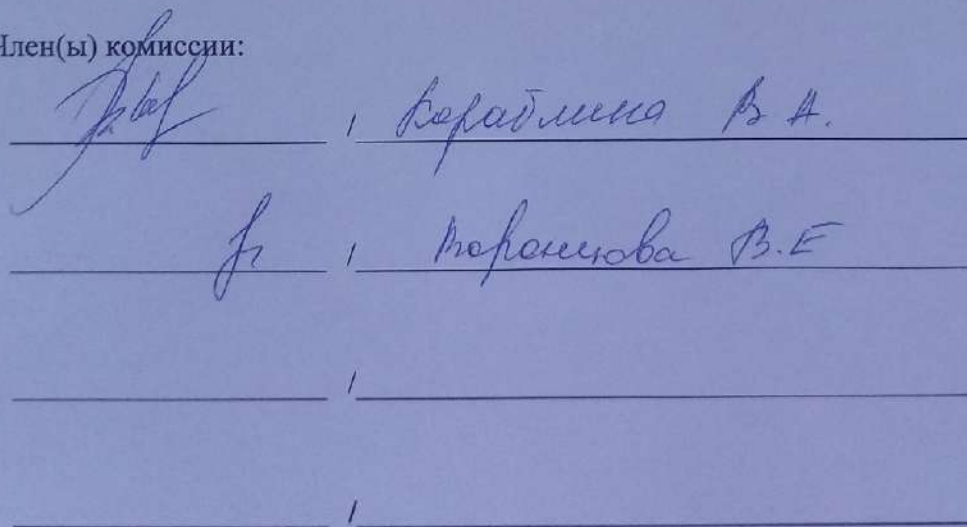 Член(ы) комиссии:
/ Кораблина В А.
/ Воронцова В.Е
/
/